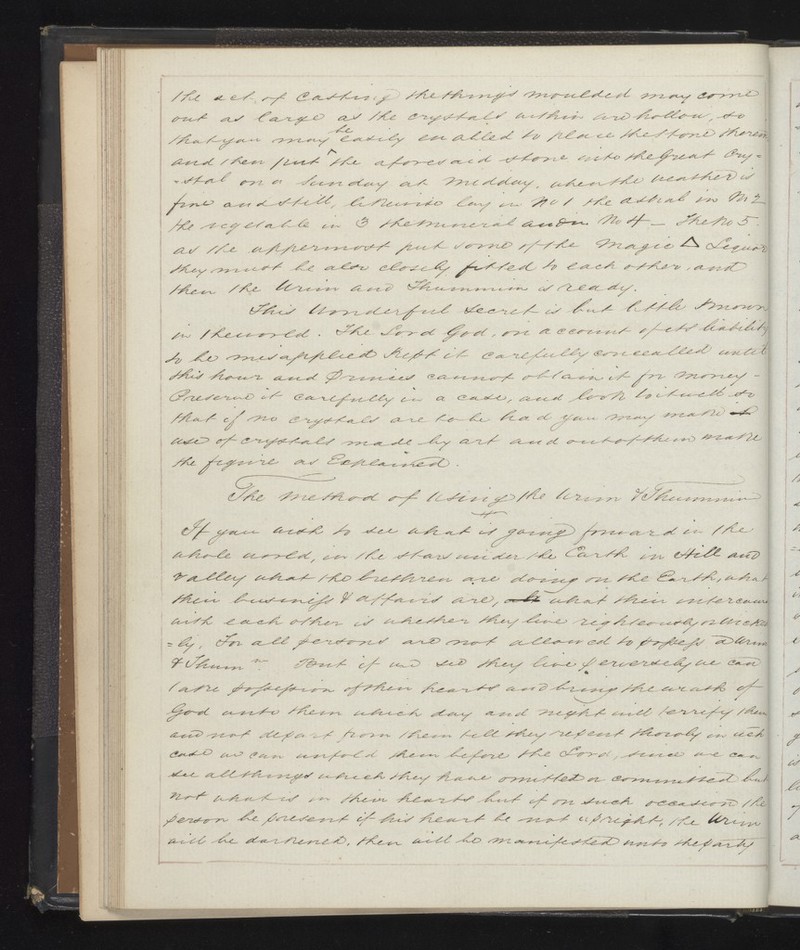 the act, of Casting the things moulded may come
out as large as the crystals within are hollow, so
that you may be easily enabled to place the stone therein
and then put the aforesaid stone into the Great Cry=
=stal on a Sunday at midday, when the weather is
fine and still, likewise lay in No 1 the astral in No 2
the vegetable in 3 the mineral and in No 4 – The No 5.
as the uppermost put some of the Magic △ Liquor
they must be also closely fitted to each other, and
then the Urim and Thummim is ready.
This Wonderful Secret is but little known
in the world. The Lord God, on account of its liability
to be misapplied kept it carefully concealled until
this hour and Princes cannot obtain it for money –
Preserve it carefully in a case, and look to it well so
that if no crystals are to be had you may make
use of crystals made by art and out of them make
the figure as Explained.
The method of Using the Urim & Thummim
If you wish to see what is going forward in the
whole world, in the stars under the Earth in Hill and
valley what the brethren are doing on the Earth, what
their business & affairs are, what their intercourse
with each other is whether they live righteously or wicked
=ly, For all persons are not allowed to possess a Urim
& Thumm. But if we see they live perversely we can
take possession of their hearts and bring the wrath of
God unto them which day and night will terrify them
and not depart from them till they repent thoroly in wch
case we can unfold them before the Lord, since we can
see all things which they have omitted or committed but
not what is in their hearts but if on such occasion the
person be present if his heart be not upright, the Urim
will be darkened, then will be manifested unto the party